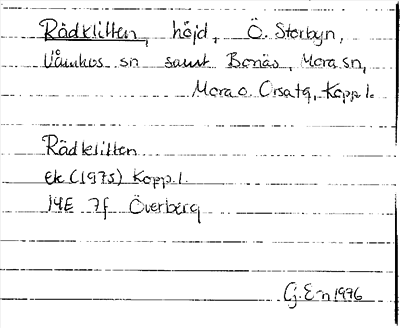 Rädklitten, höjd, Ö. Storbyn,
Våmhus sn samt Bonäs, Mora sn,
Mora o. Orsa tg, Kopp. l.
Rädklitten
ek (1975) Kopp. l.
14E 7f Överberg
Cj. E-n 1976